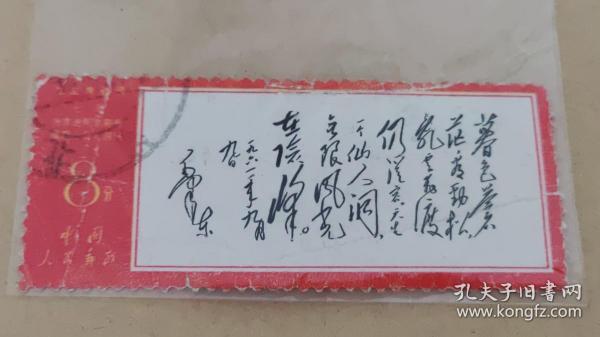 暮色苍
茫看劲松,
乱云飞渡
仍从容。天生
一个仙人洞,
无限风光
在险峰。
一九六一年九月
九日
毛泽东
8分
中国
人民邮政
孔夫子旧书网
www.kongfz.com